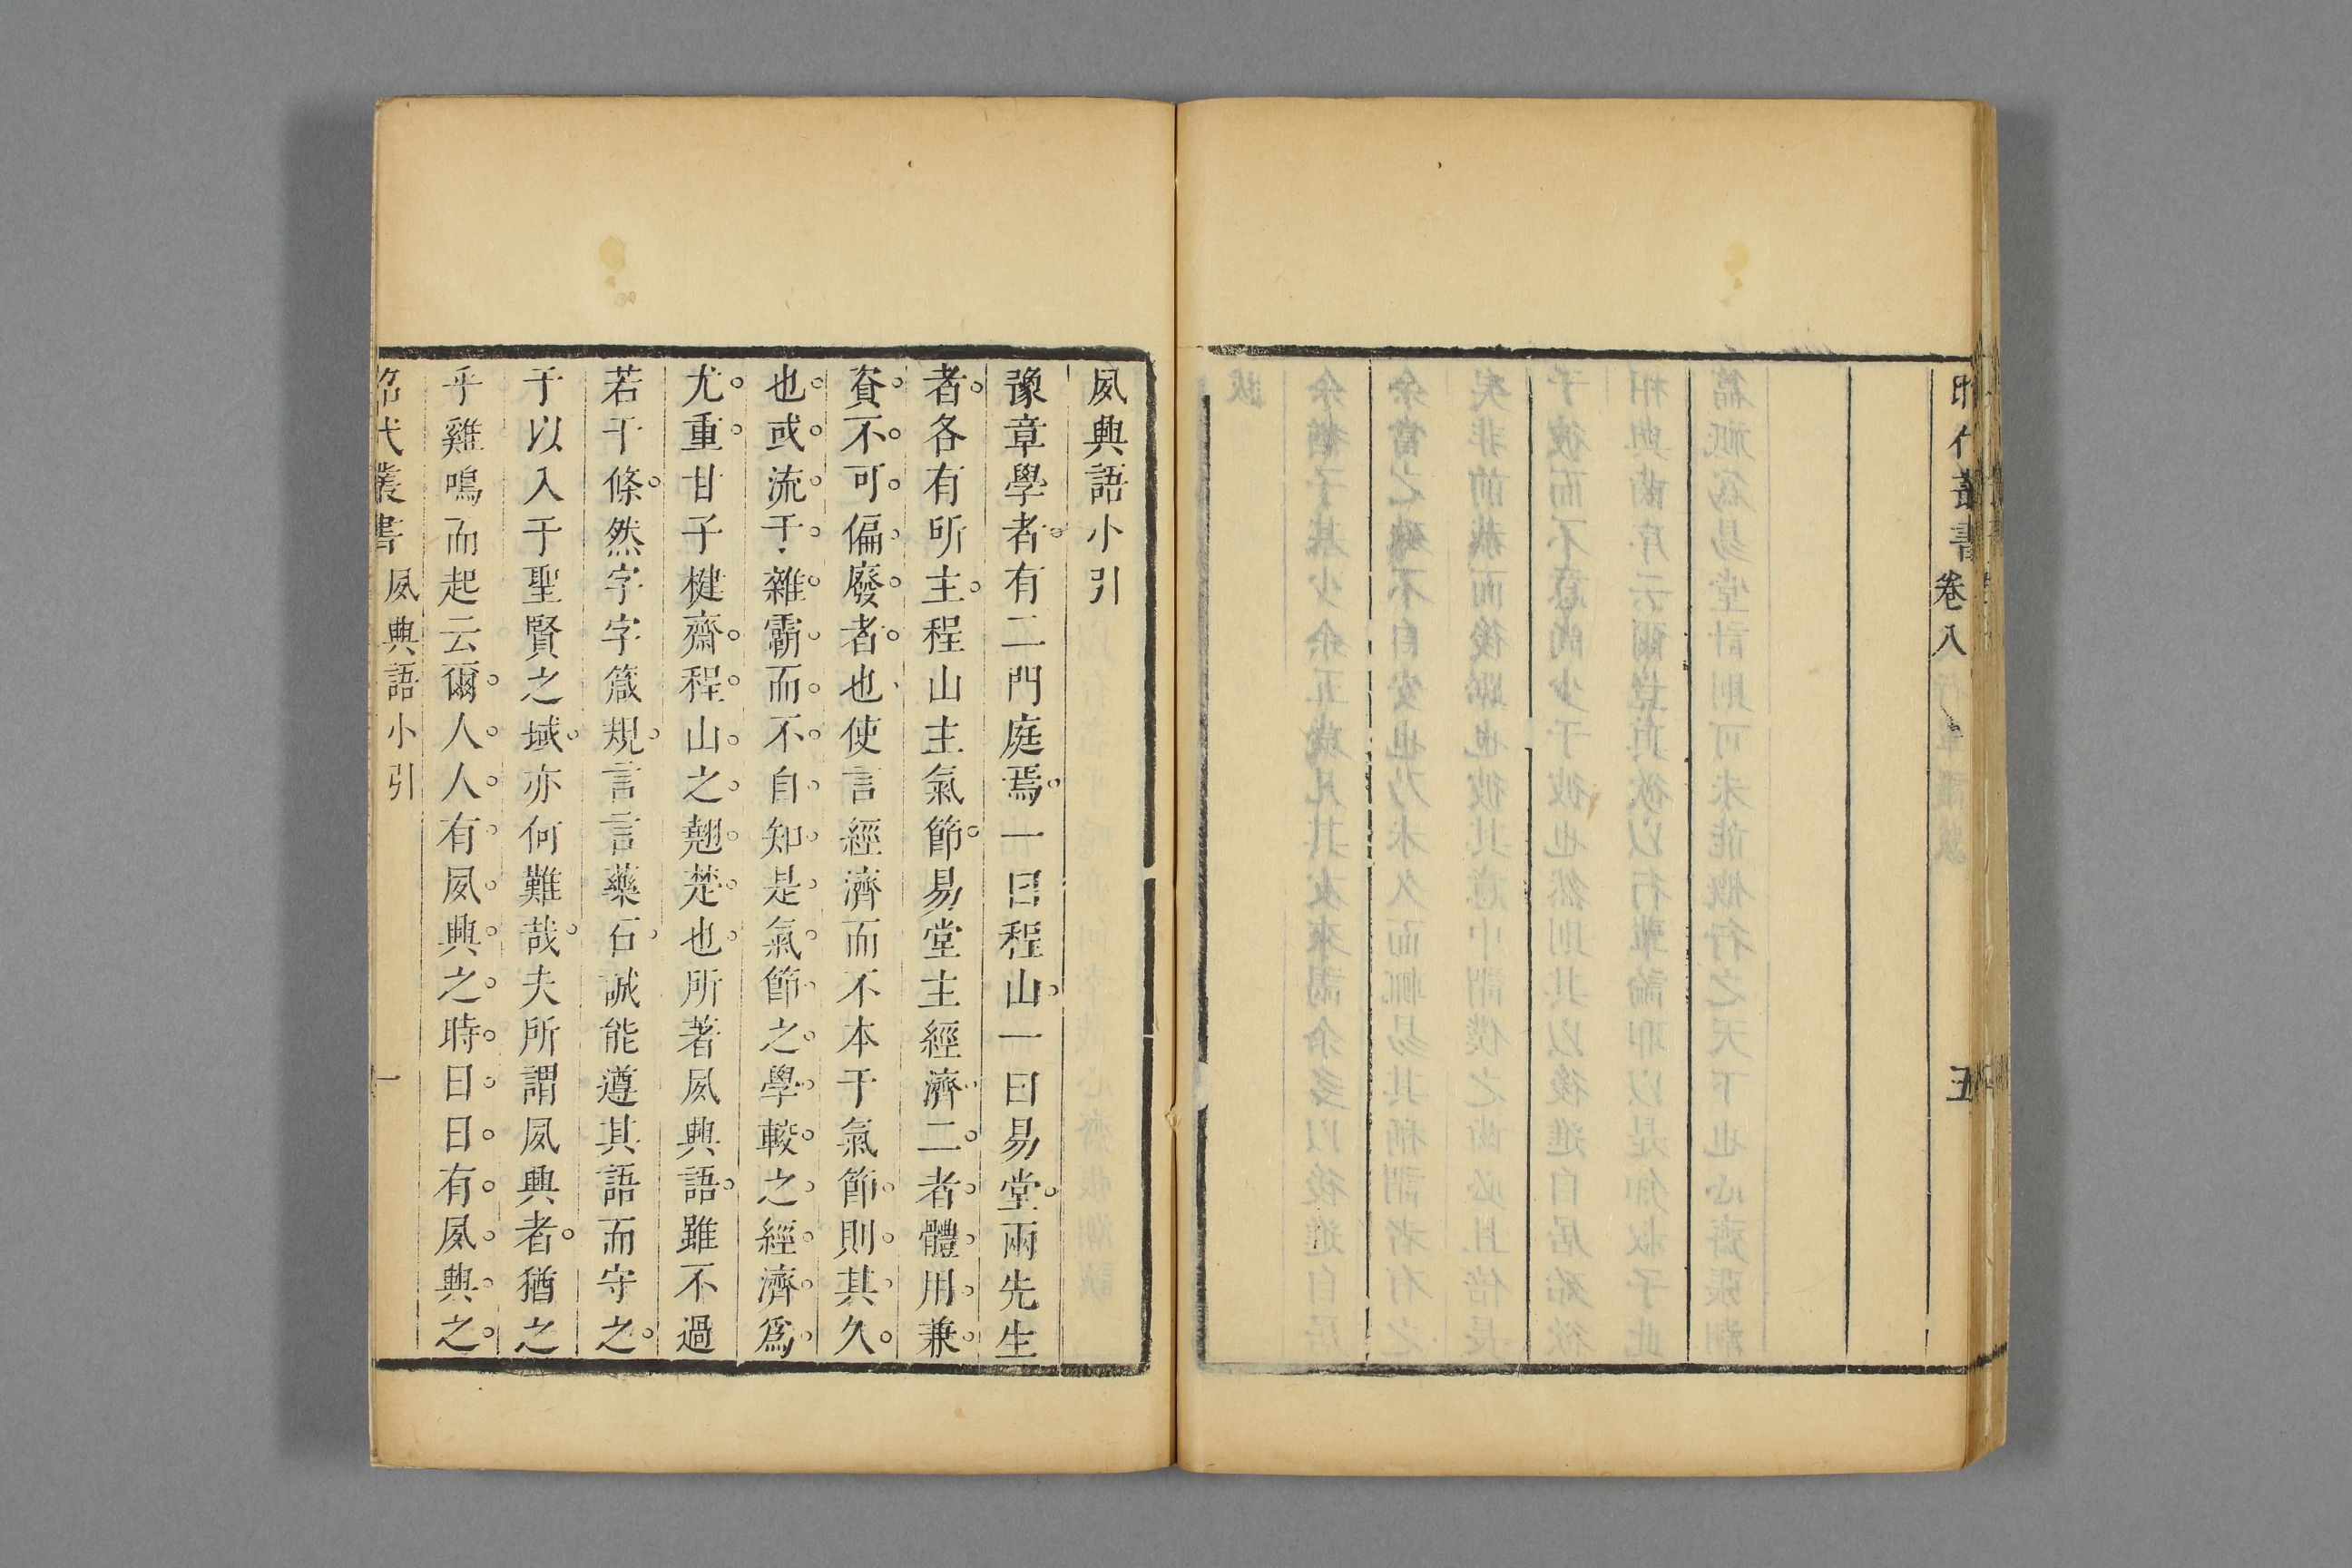 昭代叢書卷八
五
夙興語小引
豫章學者。有二門庭焉。一曰程山。一曰易堂。兩先生
者。各有所主。程山主氣節。易堂主經濟。二者。體用兼
資。不可偏廢者。也使言經濟而不本于氣節。則其久
也。或流于雜霸。而不自知。是氣節之學。較之經濟。爲
尤重。甘子楗齋。程山之翹楚也。所著夙興語。雖不過
若干條。然字字箴規。言言藥石。誠能遵其語而守之。
于以入于聖賢之域。亦何難哉。夫所謂夙興者。猶之
乎雞鳴而起云爾。人人有夙興之時。日日有夙興之
昭代叢書 夙興語小引 一